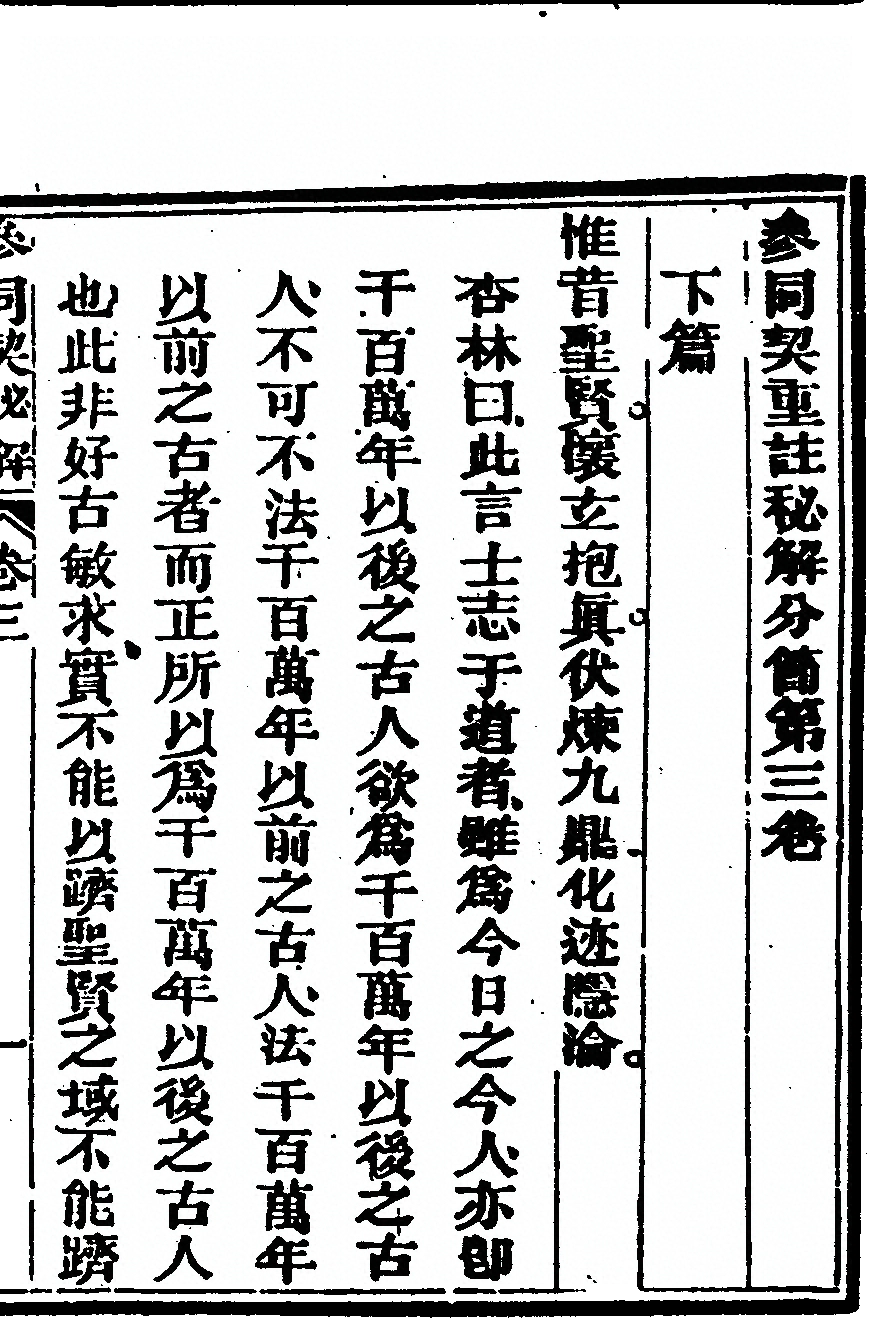 參同契重註秘解分節第三卷
下篇
惟昔聖賢懷立抱眞伏煉九鼎化迹隱淪
杏林曰此言士志于道者雖爲今日之今人亦卽
千百萬年以後之古人欲爲千百萬年以後之古
人不可不法千百萬年以前之古人法千百萬年
以前之古者而正所以爲千百萬年以後之古人
也此非好古敏求實不能以躋聖賢之域不能躋
參同契秘解 卷三 一